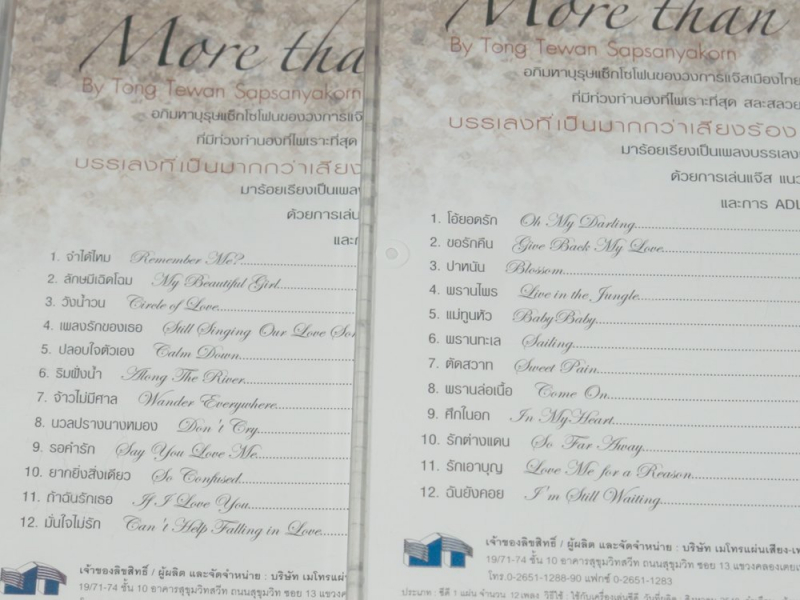 More tha
By Tong Tewan Sapsanyakorn
อภิมหาบุรุษแซ็กโซโฟนของวงการแจ๊
ที่มีท่วงทำนองที่ไพเราะที่สุด
บรรเลงที่เป็นมากกว่าเสียง
มาร้อยเรียงเป็นเพลง
ด้วยการเล่น
1. จำได้ไหม Remember Me?
2. ลักษมีเฉิดโฉม My Beautiful Girl
3. วังน้ำวน Circle of Love
4. เพลงรักของเธอ Still Singing Our Love Son
5. ปลอบใจตัวเอง Calm Down
6. ริมฝั่งน้ำ Along The River
7. จ้าวไม่มีศาล Wander Everywhere
8. นวลปรางนางหมอง Don't Cry
9. รอคำรัก Say You Love Me
10. ยากยิ่งสิ่งเดียว So Confused
11. ถ้าฉันรักเธอ If I Love You
12. มั่นใจไม่รัก Can't Help Falling in Love
เจ้าของลิขสิทธิ์ / ผู้ผลิต และจัดจำหน่าย : บริษัท เมโทรแผ่
19/71-74 ชั้น 10 อาคารสุขุมวิทสวีท ถนนสุขุมวิท ซอย 13 แขวง
More than
By Tong Tewan Sapsanyakorn
อภิมหาบุรุษแซ็กโซโฟนของวงการแจ๊สเมืองไทย
ที่มีท่วงทำนองที่ไพเราะที่สุด สละสลวย
บรรเลงที่เป็นมากกว่าเสียงร้อง
มาร้อยเรียงเป็นเพลงบรรเลง
ด้วยการเล่นแจ๊ส แนว
และการ ADL
1. โอ้ยอดรัก Oh My Darling
2. ขอรักคืน Give Back My Love
3. ปาหนัน Blossom
4. พรานไพร Live in the Jungle
5. แม่ทูนหัว Baby Baby
6. พรานทะเล Sailing
7. ตัดสวาท Sweet Pain
8. พรานล่อเนื้อ Come On
9. ศึกในอก In My Heart
10. รักต่างแดน So Far Away
11. รักเอาบุญ Love Me for a Reason
12. ฉันยังคอย I'm Still Waiting
เจ้าของลิขสิทธิ์ / ผู้ผลิต และจัดจำหน่าย : บริษัท เมโทรแผ่นเสียง-เท
19/71-74 ชั้น 10 อาคารสุขุมวิทสวีท ถนนสุขุมวิท ซอย 13 แขวงคลองเตยเ
โทร.0-2651-1288-90 แฟกซ์ 0-2651-1283
ประเภท : ซีดี 1 แผ่น จำนวน 12 เพลง วิธีใช้ : ใช้กับเครื่องเล่นซีดี